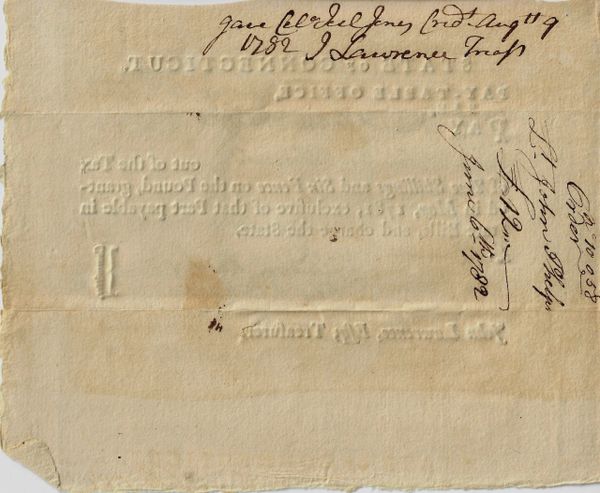 gave Col Joel Jones Credt. Augtt 9
1782 J Lawrence Treasr
STATE OF CONNECTICUT,
PAY-TABLE OFFICE,
PAY
out of the Tax
of Two Shillings and Six Pence on the Pound, grant-
in May, 1781, exclusive of that Part payable in
Bills, and charge the State.
£
John Lawrence, Esq; Treasurer.
No 10,058
Order
Lt. John Phelps
June 6th 1782